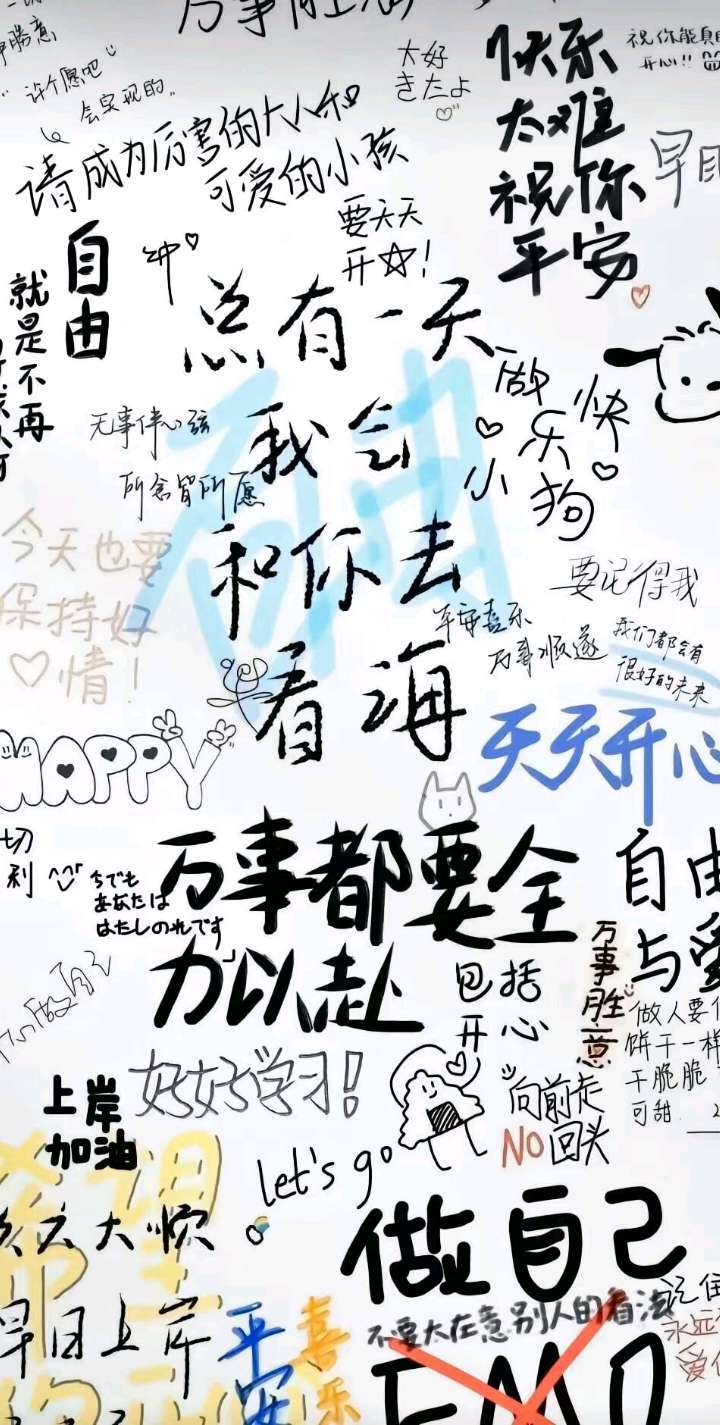 许个愿吧
会实现的。
大好
きたよ
快乐
太难
祝你
平安
开心!!
请成为厉害的大人和
可爱的小孩
要天天
开☆!
自
由
冲
就是不再
总有一天
我会
和你去
看海
自由
做
快
乐
小
狗
无事伴心弦
所念皆所愿
今天也要
保持好
情!
要记得我
平安喜乐
万事顺遂
我们都会有
很好的未来
天天开心
HAPPY
万事都要全
力以赴
包括
开心
切
利
ちでも
あなたは
はたしのれです
自由
与爱
万事胜意
做人要
饼干一样
干脆脆!
可甜
好好学习!
上岸
加油
向前走
NO回头
let's go
希望
大顺
早日上岸
平安
喜乐
做自己
不要太在意别人的看法
EMO
永远
爱你